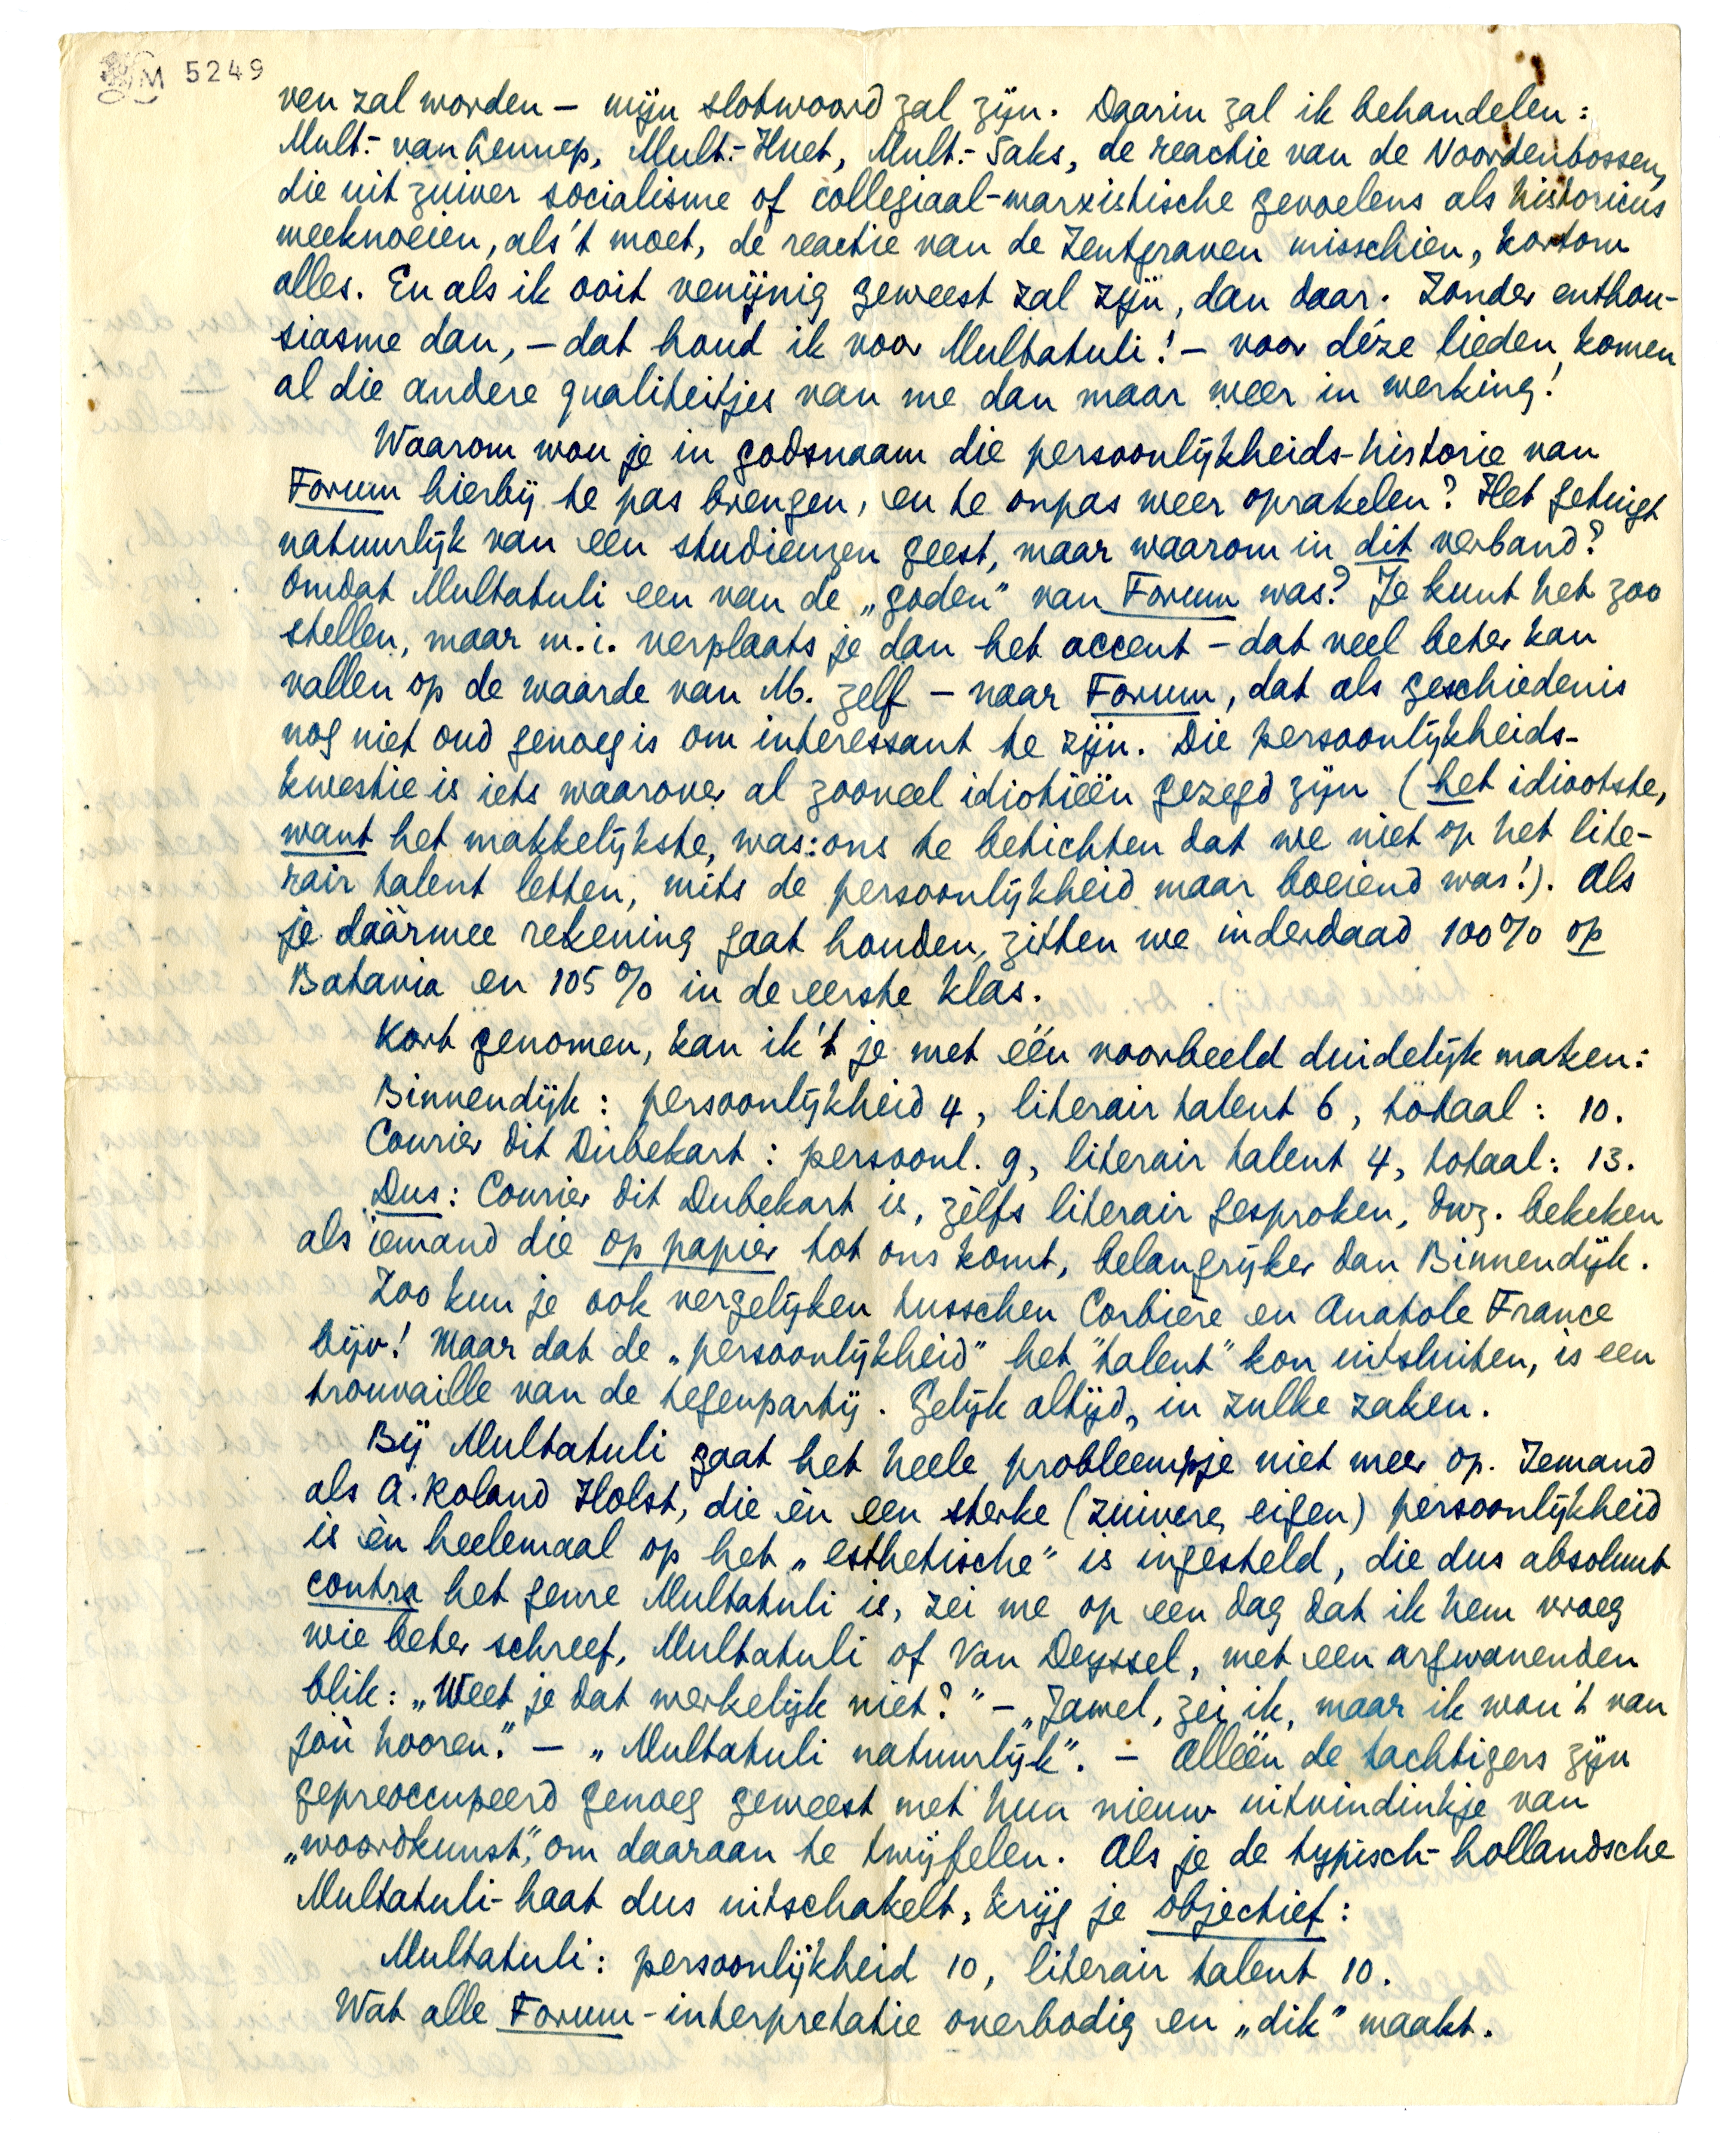 M 5249
ven zal worden — mijn slotwoord zal zijn. Daarin zal ik behandelen:
Mult.- van Lennep, Mult.- Huet, Mult.- Saks, de reactie van de Noordenbossen,
die uit zuiver socialisme of collegiaal-marxistische gevoelens als historicus
meeknoeien, als 't moet, de reactie van de Zentgraven misschien, kortom
alles. En als ik ooit venijnig geweest zal zijn, dan daar. Zonder enthou-
siasme dan, — dat houd ik voor Multatuli! — voor déze lieden komen
al die andere qualiteitjes van me dan maar weer in werking!
Waarom wou je in godsnaam die persoonlijkheids-historie van
Forum hierbij te pas brengen, en te onpas weer oprakelen? Het getuigt
natuurlijk van een studieuzen geest, maar waarom in dit verband?
Omdat Multatuli een van de „goden" van Forum was? Je kunt het zoo
stellen, maar m.i. verplaats je dan het accent — dat veel beter kan
vallen op de waarde van M. zelf — naar Forum, dat als geschiedenis
nog niet oud genoeg is om interessant te zijn. Die persoonlijkheids-
kwestie is iets waarover al zooveel idiotieën gezegd zijn (het idiootste,
want het makkelijkste, was: ons te betichten dat we niet op het lite-
rair talent letten, mits de persoonlijkheid maar boeiend was!). Als
je dáármee rekening gaat houden, zitten we inderdaad 100% op
Batavia en 105% in de eerste klas.
Kort genomen, kan ik 't je met één voorbeeld duidelijk maken:
Binnendijk: persoonlijkheid 4, literair talent 6, totaal: 10.
Courier dit Dubekart: persoonl. 9, literair talent 4, totaal: 13.
Dus: Courier dit Dubekart is, zèlfs literair gesproken, dwz. bekeken
als iemand die op papier tot ons komt, belangrijker dan Binnendijk.
Zoo kun je ook vergelijken tusschen Corbière en Anatole France
bijv! Maar dat de „persoonlijkheid" het "talent" kon uitsluiten, is een
trouvaille van de tegenpartij. Gelijk altijd, in zulke zaken.
Bij Multatuli gaat het heele probleempje niet meer op. Iemand
als A. Roland Holst, die èn een sterke (zuivere, eigen) persoonlijkheid
is èn heelemaal op het „esthetische" is ingesteld, die dus absoluut
contra het genre Multatuli is, zei me op een dag dat ik hem vroeg
wie beter schreef, Multatuli of Van Deyssel, met een argwanenden
blik: „Weet je dat werkelijk niet?" — „Jawel, zei ik, maar ik wou 't van
jòu hooren." — „Multatuli natuurlijk". — Alléén de tachtigers zijn
gepreoccupeerd genoeg geweest met hun nieuw uitvindinkje van
„woordkunst", om daaraan te twijfelen. Als je de typisch-hollandsche
Multatuli-haat dus uitschakelt, krijg je objectief:
Multatuli: persoonlijkheid 10, literair talent 10.
Wat alle Forum-interpretatie overbodig en „dik" maakt.